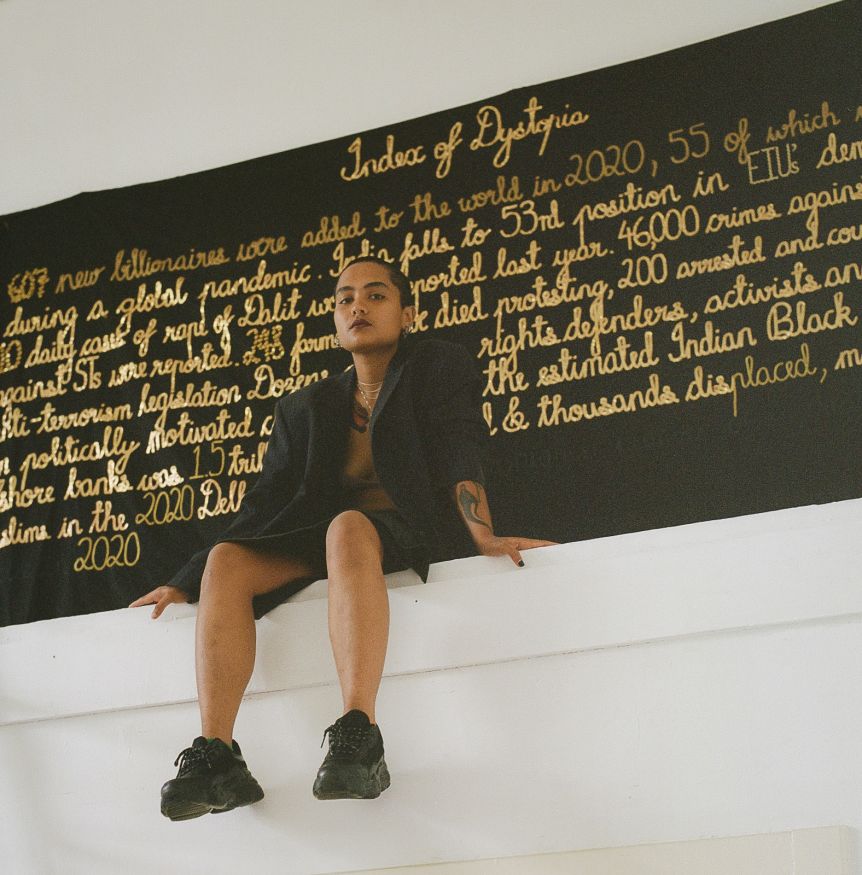 Index of Dystopia
607 new billionaires were added to the world in 2020, 55 of which
during a global pandemic. India falls to 53rd position in EIU's dem
10 daily cases of rape of Dalit wo ported last year. 46,000 crimes agains
against STs were reported. 248 farm e died protesting, 200 arrested and cou
nti-terrorism legislation Dozens rights defenders, activists an
n politically motivated c the estimated Indian Black
shore banks was 1.5 tril d & thousands displaced, m
slims in the 2020 Delh
2020